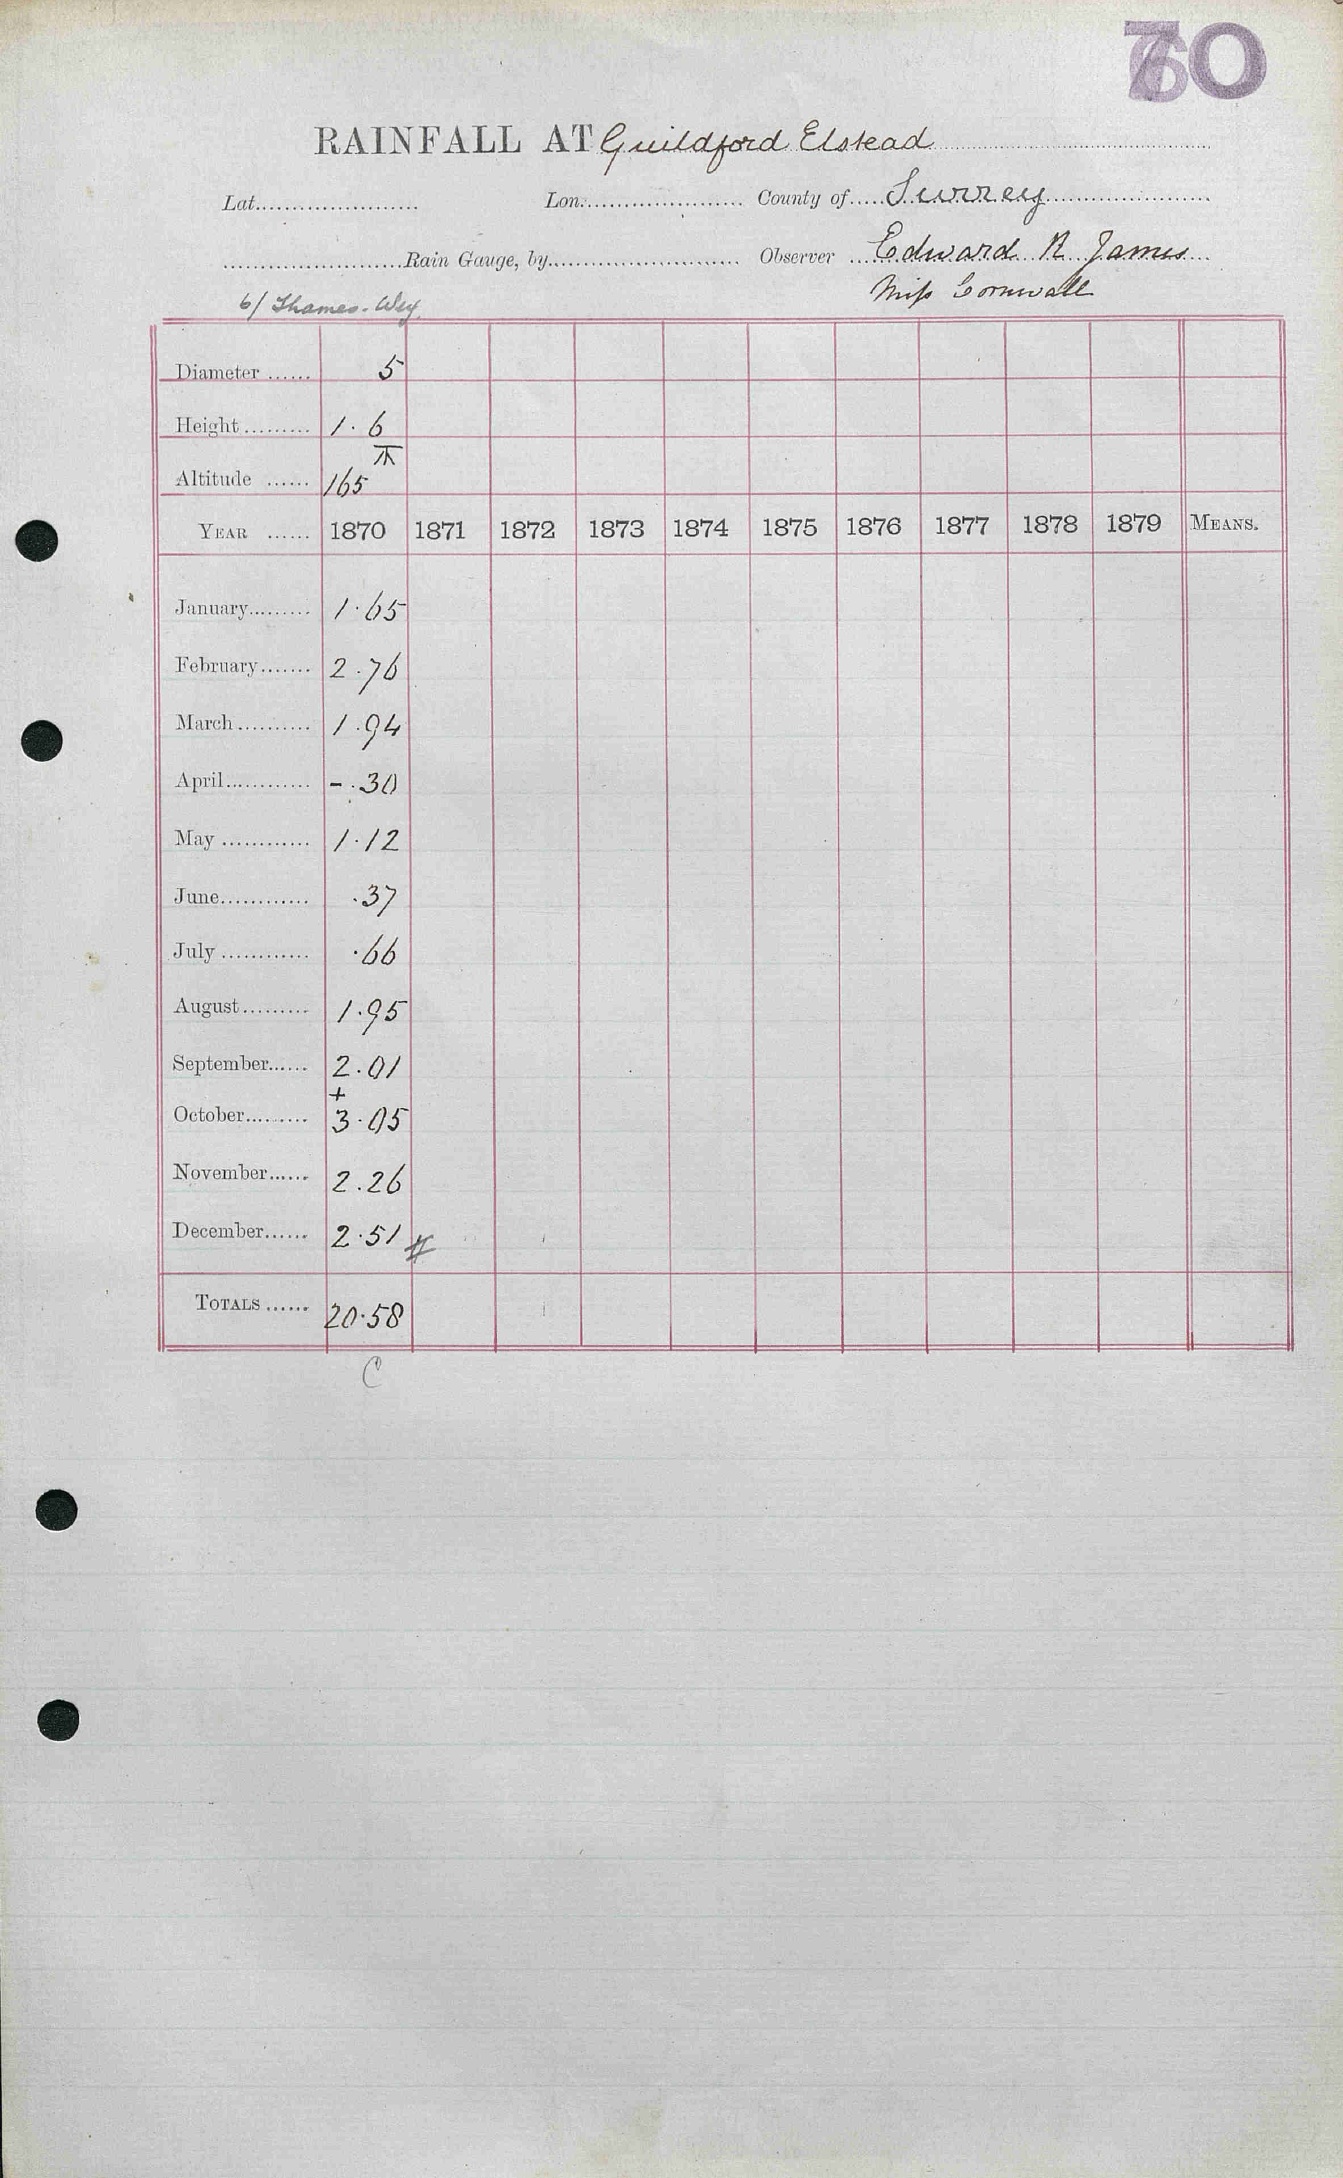 70
RAINFALL AT Guildford Elstead
Lat. Lon. County of Surrey
Rain Gauge, by Observer Edward R James
Miss Cornwall
6/ Thames-Wey
Diameter 5
Height 1.6
Altitude 165
YEAR 1870 1871 1872 1873 1874 1875 1876 1877 1878 1879 MEANS.
January 1.65
February 2.76
March 1.94
April - .30
May 1.12
June .37
July .66
August 1.95
September 2.01
+
October 3.05
November 2.26
December 2.51 #
TOTALS 20.58
C